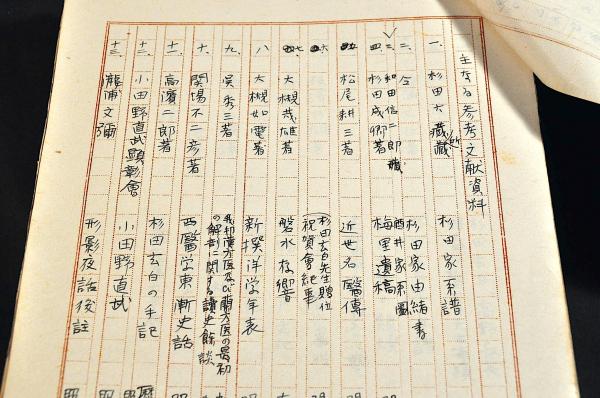 主なる参考文献資料
一、杉田大藏所藏 杉田家系譜
二、仝 杉田家由緒書
三、和田信二郎藏 酒井家系圖
四、杉田成卿著 梅里遺稿
五 松尾耕三著 近世名醫傳
六 杉田玄白先生贈位祝賀會紀事
七 大槻茂雄著 磐水存響
八 大槻如電著 新撰洋学年表
九、呉秀三著 我邦漢方医及び蘭方医の最初の解剖に関する讀史餘談
十、関場不二彦著 西醫学東漸史話
十一、高濱二郎著 杉田玄白の手記
十二、小田野直武顕彰會 小田野直武
十三、瀧浦文彌 形影夜話後註